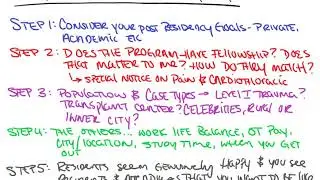 STEP 1: CONSIDER YOUR POST RESIDENCY GOALS - PRIVATE,
ACADEMIC ETC
STEP 2: DOES THE PROGRAM HAVE FELLOWSHIP? DOES
THAT MATTER TO ME? HOW DO THEY MATCH?
↳ SPECIAL NOTICE ON PAIN & CARDIOTHORACIC
STEP 3: POPULATION & CASE TYPES → LEVEL I TRAUMA?
TRANSPLANT CENTER? CELEBRITIES, RURAL OR
INNER CITY?
STEP 4: THE OTHERS... WORK LIFE BALANCE, OT PAY,
CITY/LOCATION, STUDY TIME, WHEN YOU GET
OUT
STEP 5: RESIDENTS SEEM GENUINELY HAPPY & YOU SEE
THAT YOU WANT TO BE LIKE